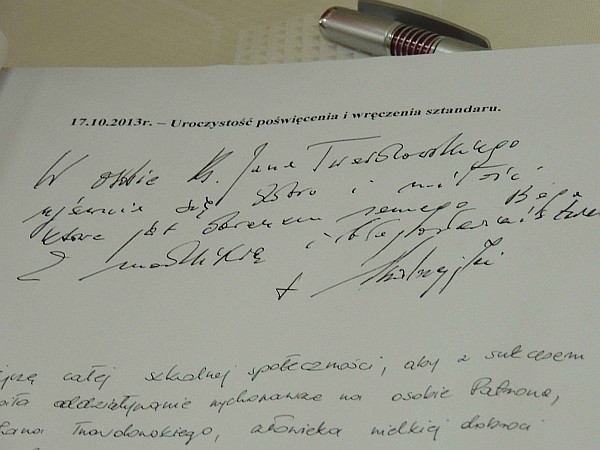 17.10.2013r. – Uroczystość poświęcenia i wręczenia sztandaru.
W osobie Ks. Jana Twardowskiego
ujawnia się dobro i miłość
które jest obrazem samego Boga
Z modlitwą i błogosławieństwem
+
całej szkolnej społeczności, aby z sukcesem
oddziaływanie wychowawcze na osobie Patrona,
Jana Twardowskiego, człowieka wielkiej dobroci